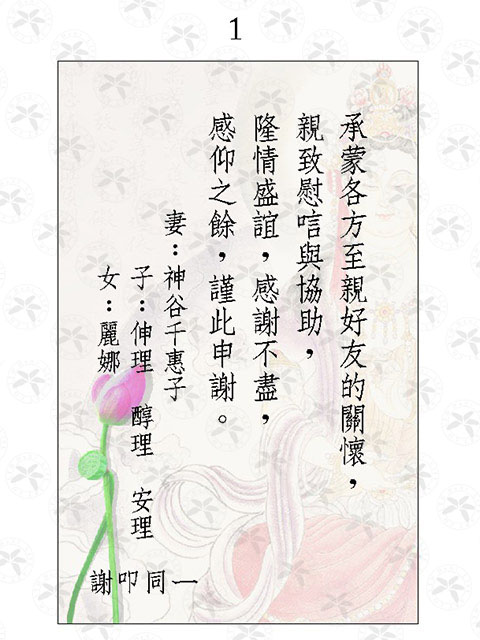 1
承蒙各方至親好友的關懷，
親致慰唁與協助，
隆情盛誼，感謝不盡，
感仰之餘，謹此申謝。
妻：神谷千惠子
子：伸理　醇理　安理
女：麗娜
一同叩謝